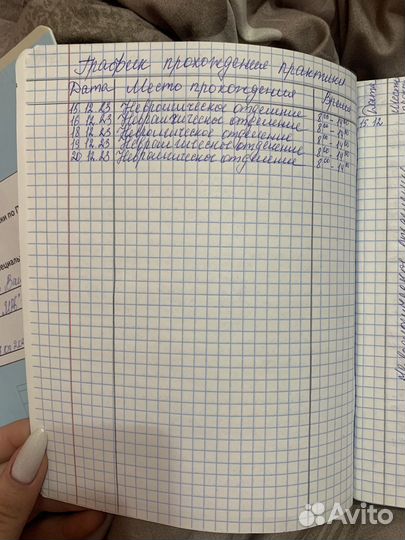 График прохождения практики
Дата Место прохождения Время
15.12.23 Неврологическое отделение 8⁰⁰-14⁰⁰
16.12.23 Неврологическое отделение 8⁰⁰-14⁰⁰
18.12.23 Неврологическое отделение 8⁰⁰-14⁰⁰
19.12.23 Неврологическое отделение 8⁰⁰-14⁰⁰
20.12.23 Неврологическое отделение 8⁰⁰-14⁰⁰
Дата
15.12
Место
Неврологическое отделение
ки по П
Avito